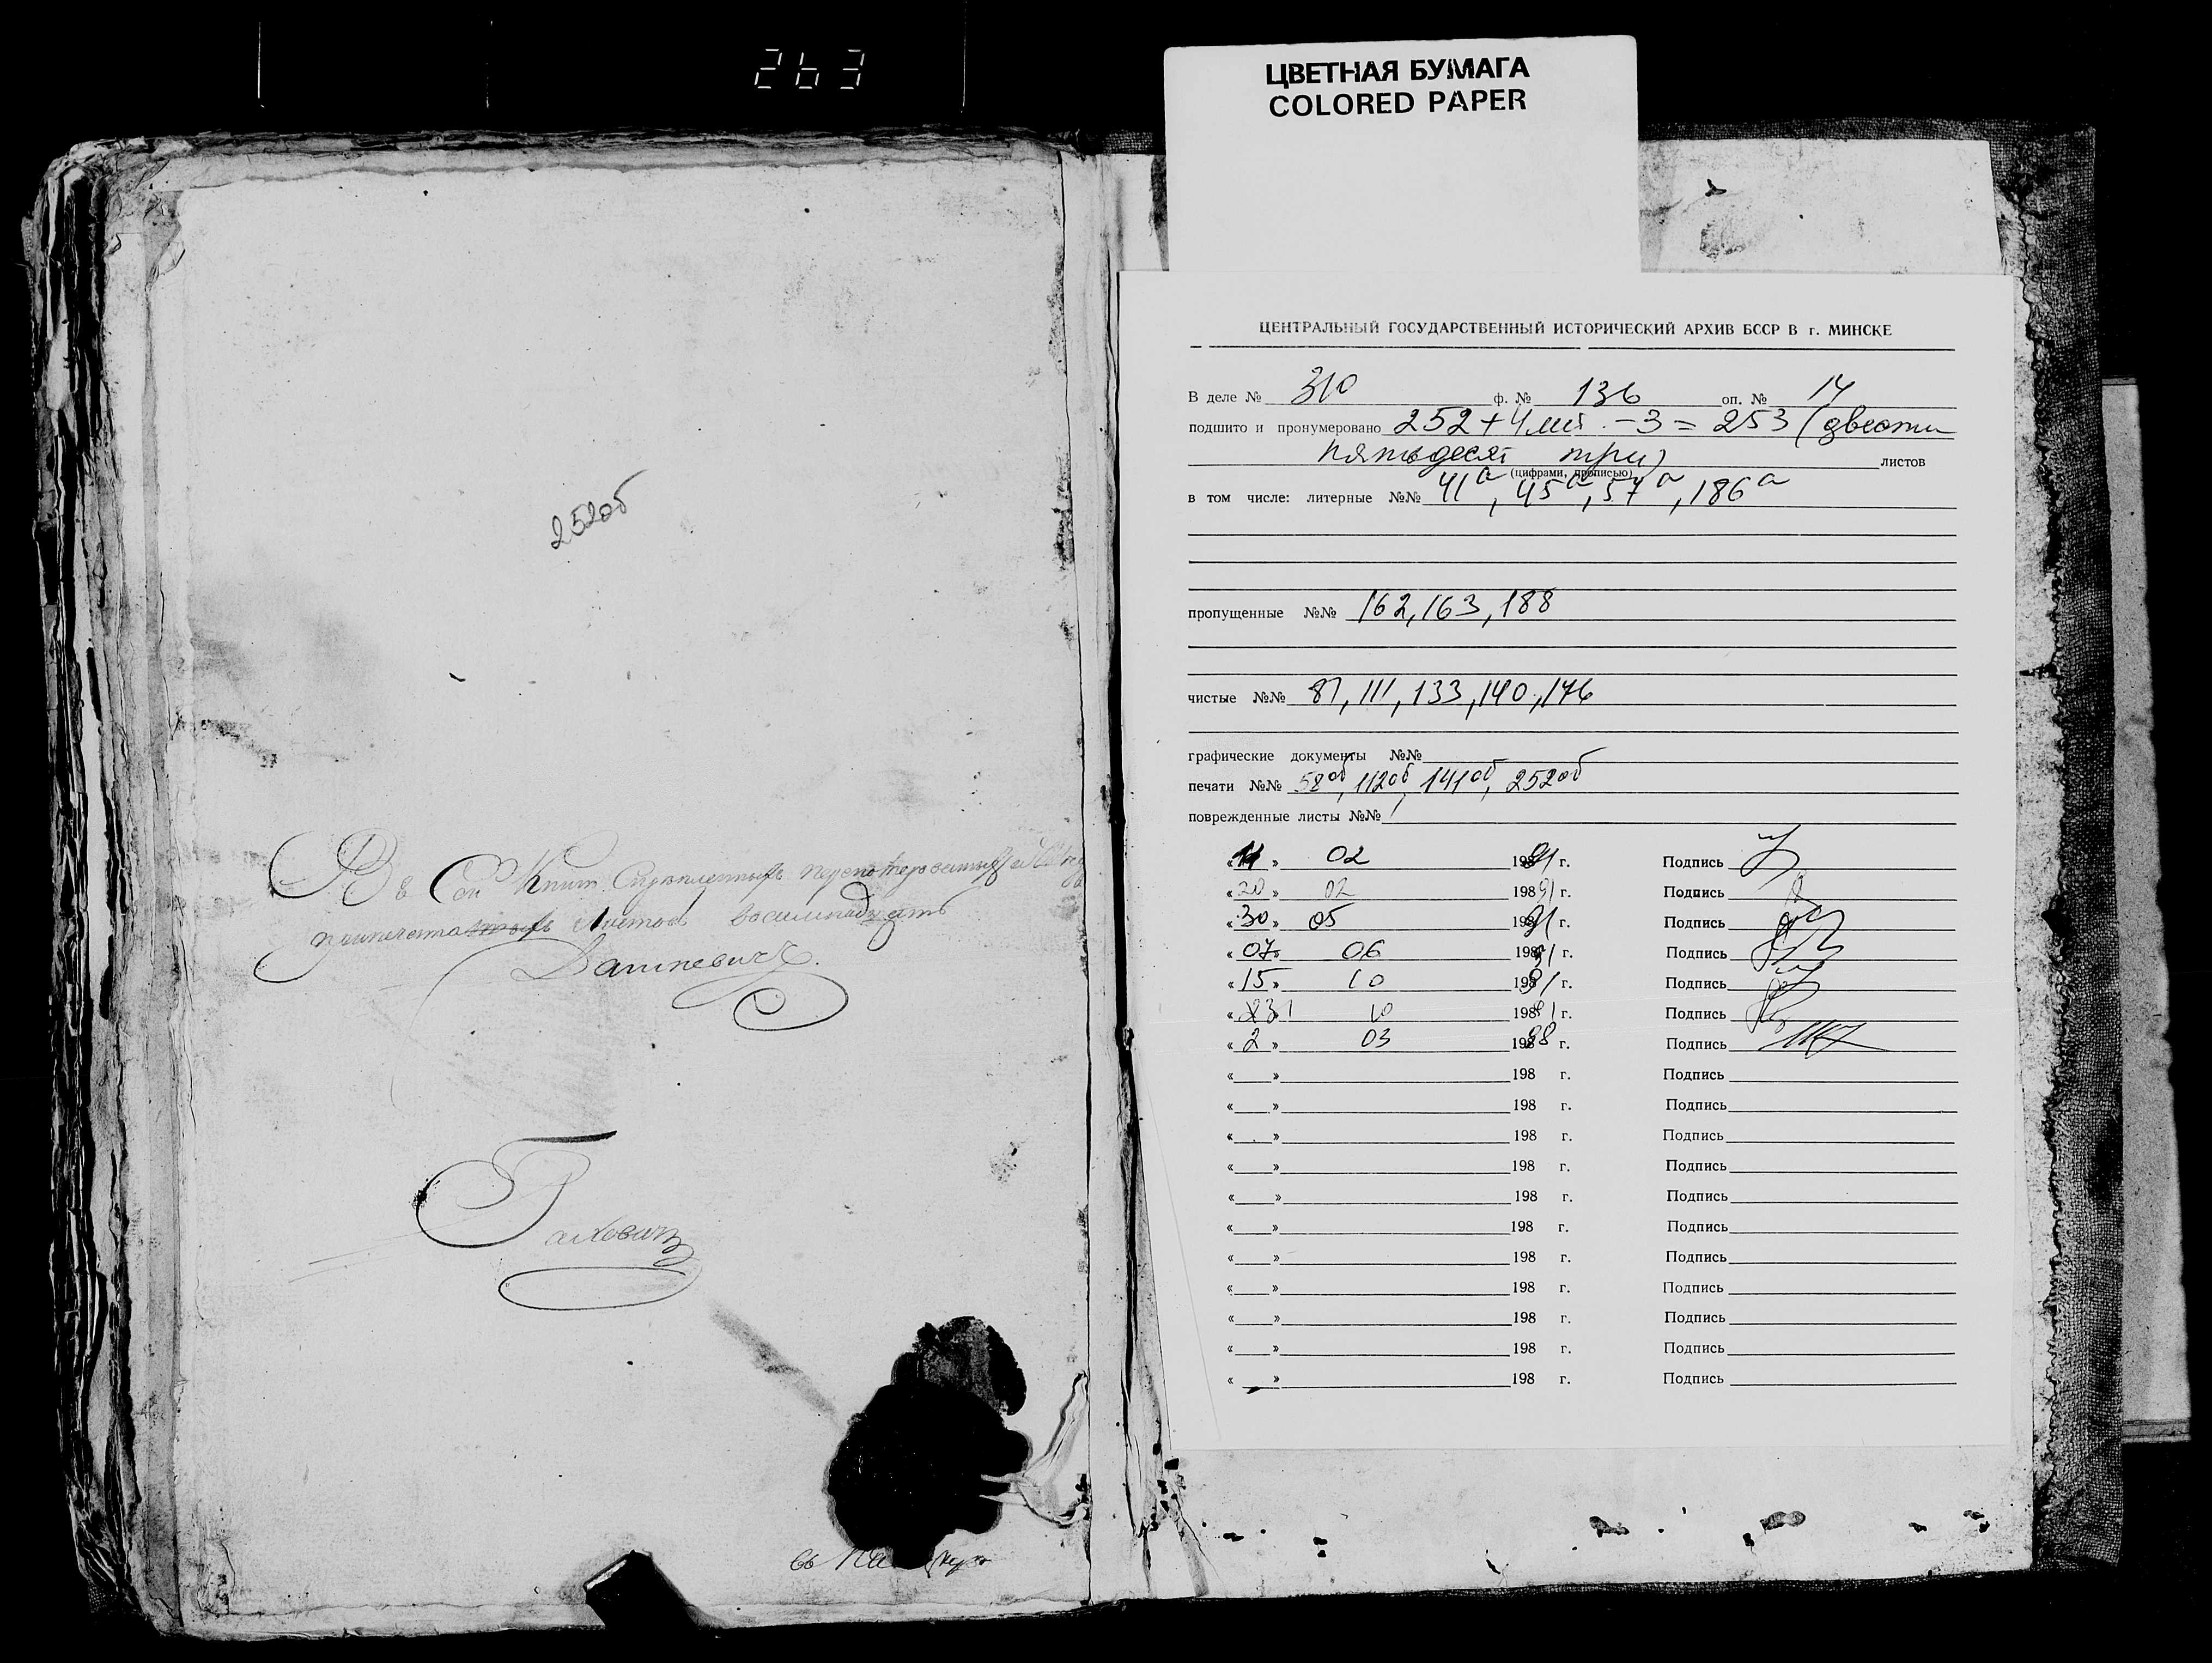 263
ЦВЕТНАЯ БУМАГА
COLORED PAPER
252об
Въ Сей Книг
Листов восимнадцать
Дашкевичъ.
въ
ЦЕНТРАЛЬНЫЙ ГОСУДАРСТВЕННЫЙ ИСТОРИЧЕСКИЙ АРХИВ БССР В г. МИНСКЕ
В деле № 310 ф. № 136 оп. № 14
подшито и пронумеровано 252+4лит.-3=253 (двести
пятьдесят три) листов
(цифрами, прописью)
в том числе: литерные №№ 41а, 45а, 57а, 186а
пропущенные №№ 162, 163, 188
чистые №№ 87, 111, 133, 140, 176
графические документы №№
печати №№ 58об, 112об, 141об, 252об
поврежденные листы №№
«11» 02 1991 г. Подпись
«20» 02 1991 г. Подпись
«30» 05 1991 г. Подпись
«07» 06 1991 г. Подпись
«15» 10 1991 г. Подпись
« » 10 1991 г. Подпись
«2» 03 1998 г. Подпись
« » 198 г. Подпись
« » 198 г. Подпись
« » 198 г. Подпись
« » 198 г. Подпись
« » 198 г. Подпись
« » 198 г. Подпись
« » 198 г. Подпись
« » 198 г. Подпись
« » 198 г. Подпись
« » 198 г. Подпись
« » 198 г. Подпись